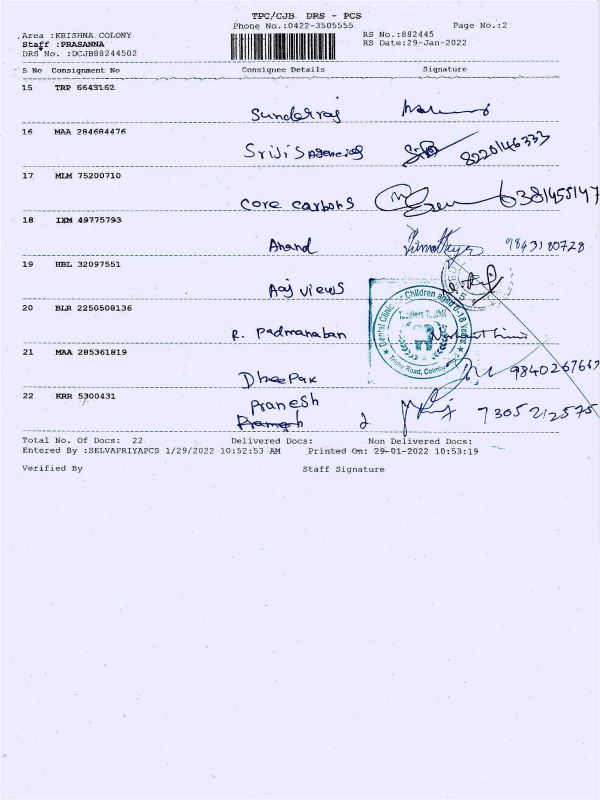 TPC/CJB DRS - PCS
Phone No.:0422-3505555 Page No.:2
Area :KRISHNA.COLONY RS No.:882445
Staff :PRASANNA RS Date:29-Jan-2022
DRS No. :DCJB88244502
S No Consignment No Consignee Details Signature
15 TRP 6643162
Sundarraj
16 MAA 284684476
SriJi's Agencies 8220146333
17 MLM 75200710
Core carbons 6381455147
18 IXM 49775793
Anand 9843180728
19 HBL 32097551
Aaj views
20 BLR 2250508136
Dental Clinic for Children aged 0-18 Years
Trichy Road,
R. Padmanaban
21 MAA 285361819
Dheepak
22 KRR 5300431
Pranesh 7305212575
Total No. Of Docs: 22 Delivered Docs: Non Delivered Docs:
Entered By :SELVAPRIYAPCS 1/29/2022 10:52:53 AM Printed On: 29-01-2022 10:53:19
Verified By Staff Signature